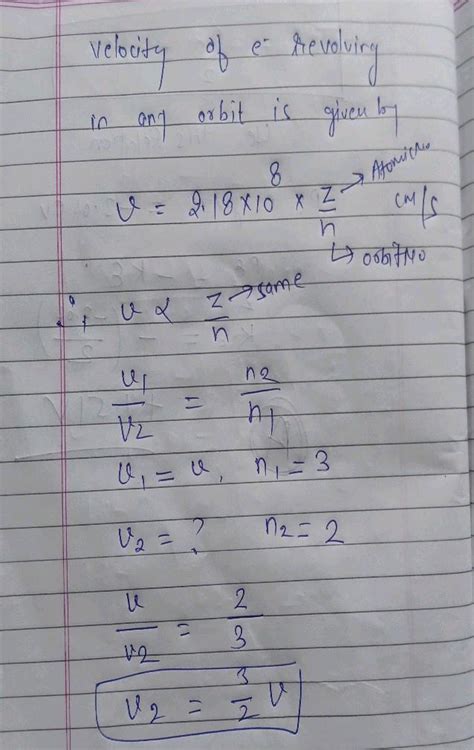 velocity of e⁻ revolving
in any orbit is given by
v = 2.18 × 10⁸ × z/n cm/s
→ Atomic No
↳ orbit No
∴ v ∝ z/n → same
v₁/v₂ = n₂/n₁
v₁ = v, n₁ = 3
v₂ = ? n₂ = 2
v/v₂ = 2/3
v₂ = 3/2 v